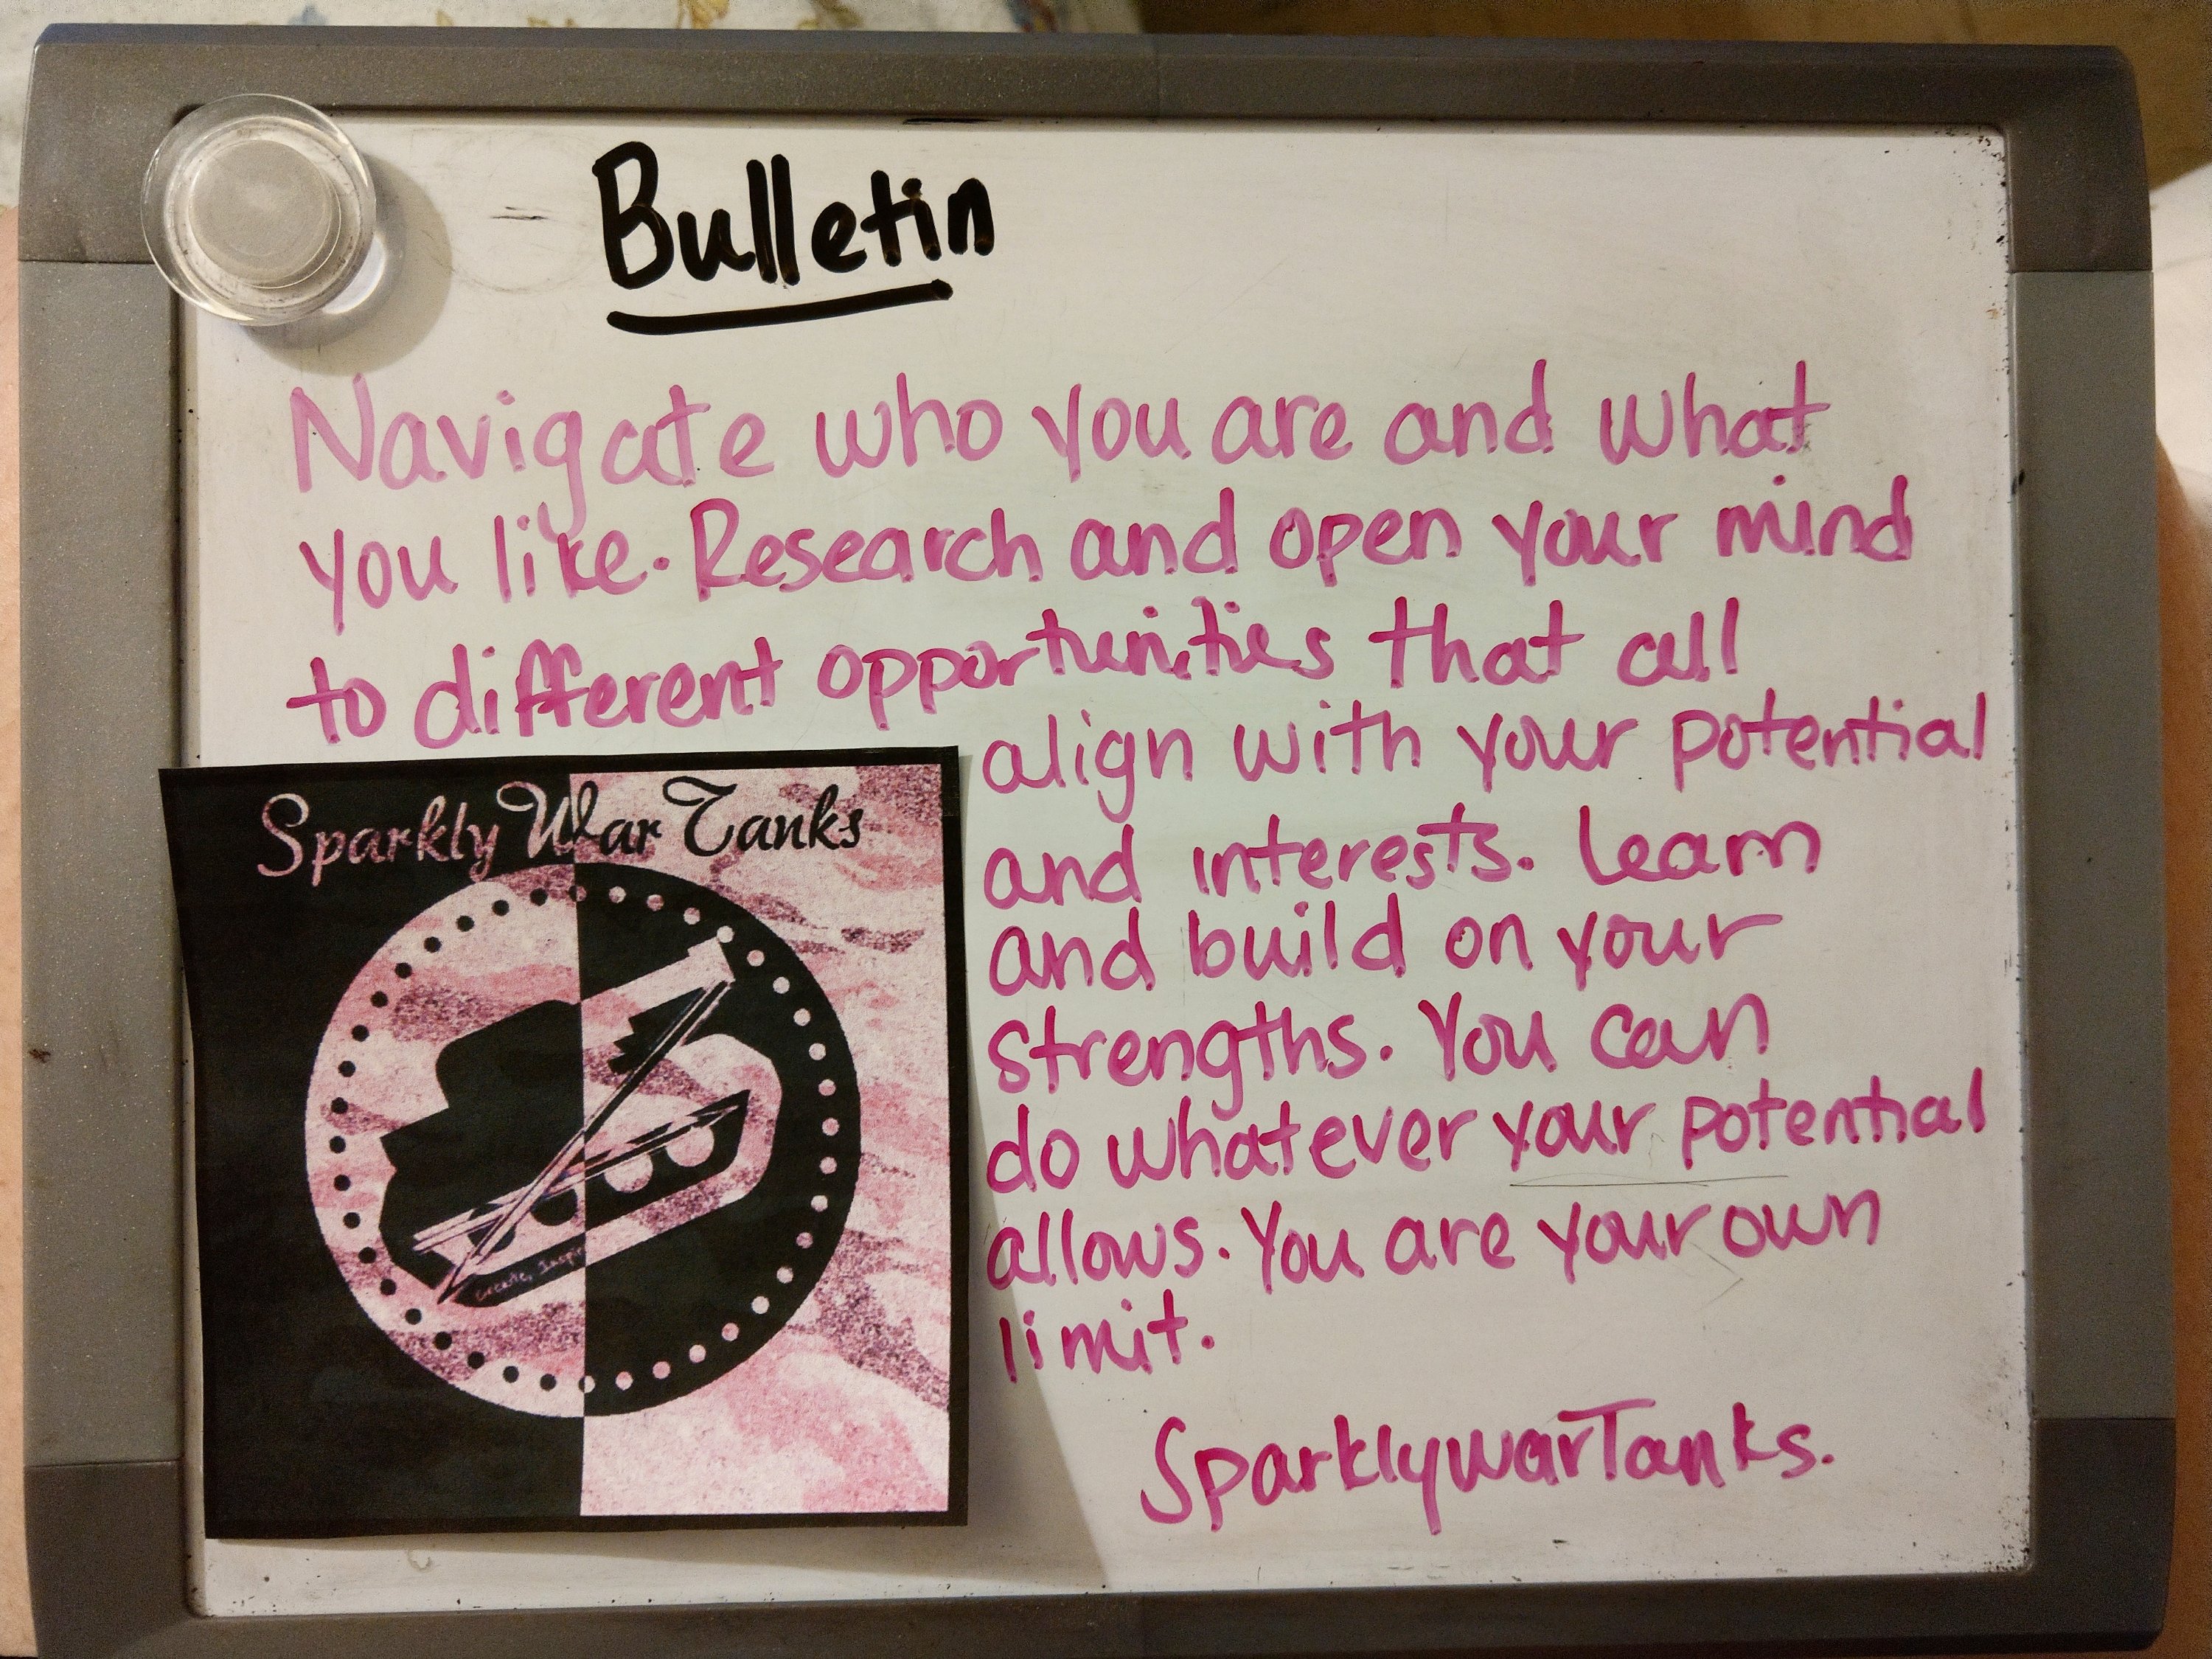 Bulletin
Navigate who you are and what
you like. Research and open your mind
to different opportunities that all
align with your potential
and interests. Learn
and build on your
strengths. You can
do whatever your potential
allows. You are your own
limit.
SparklywarTanks.
Sparkly War Tanks
create, Inspir